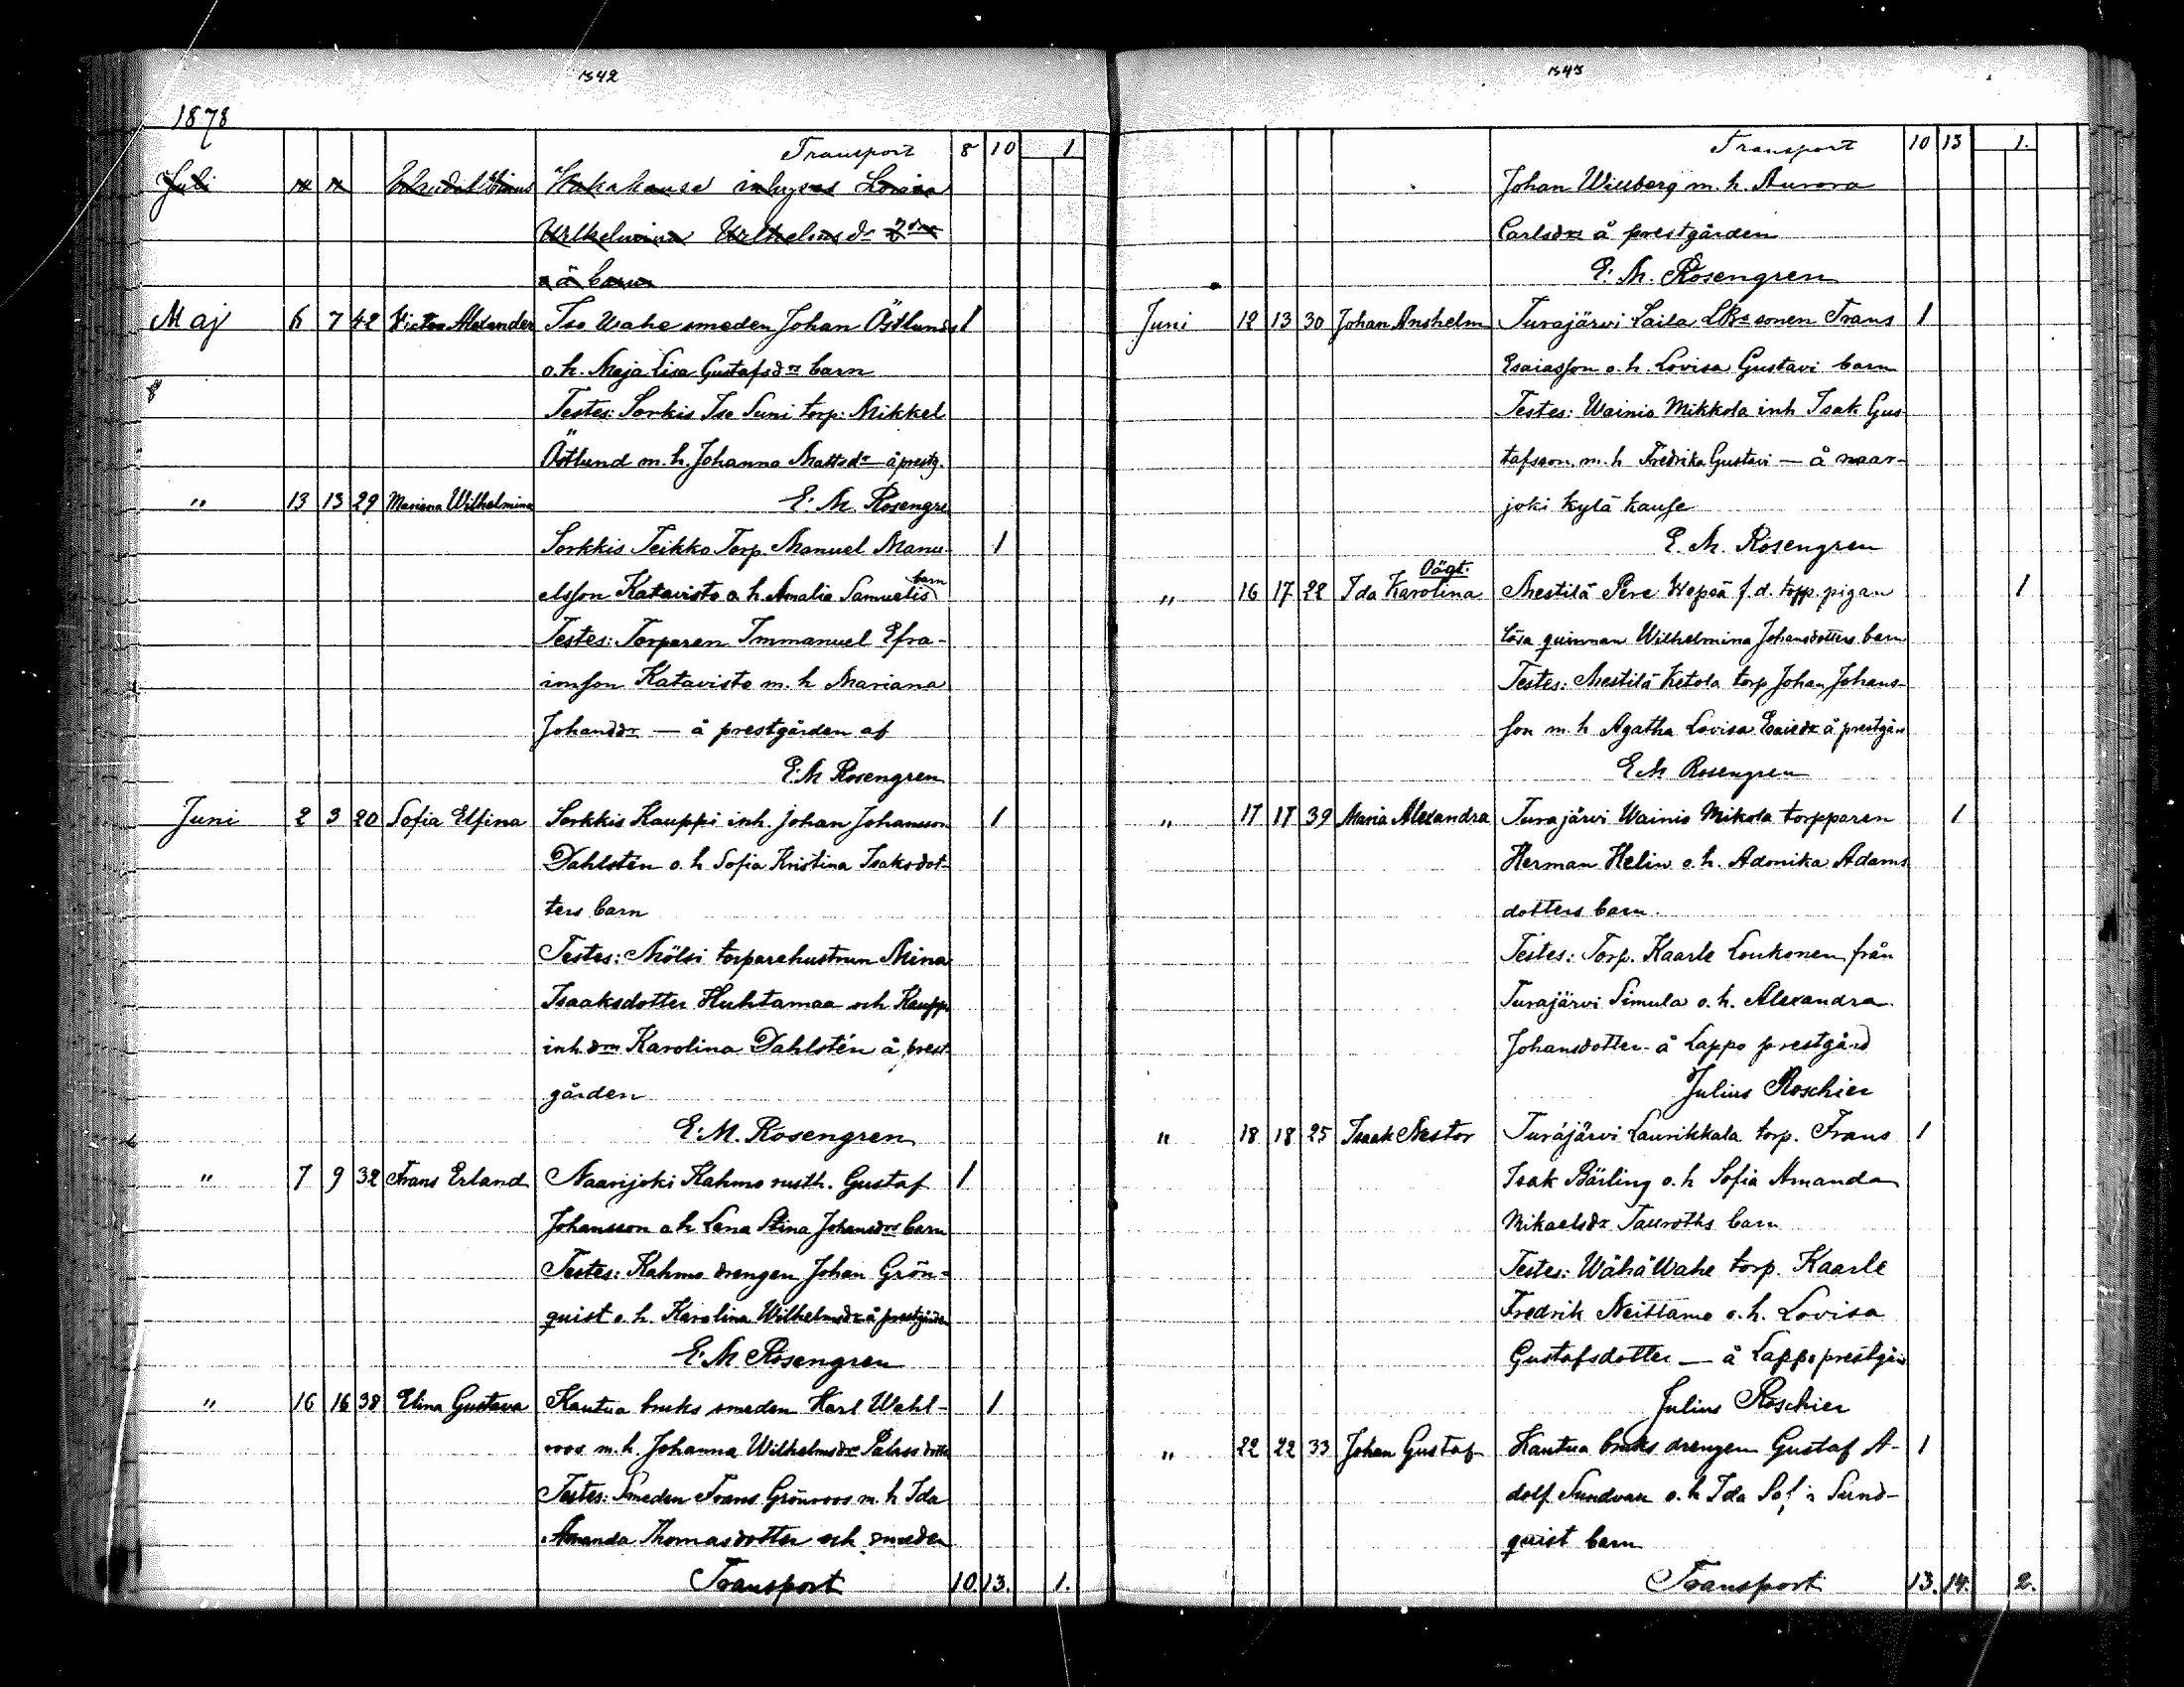 342
1878
Transport 8 10 1
Juli Kakakause inhyses Lovisa
Wilhelmina Wilhelmsdr
å barn
Maj 6 7 42 Victor Alexander Iso Wahe smeden Johan Östlunds 1
o.h. Maja Lisa Gustafsdrs barn
Testes: Sorkis Iso Suni torp: Mikkel
Östlund m.h. Johanna Mattsdr — å prestg.
" 13 13 29 Mariana Wilhelmina E. M. Rosengre
Sorkkis Teikko Torp. Manuel Manu- 1
elsson Katavisto o h. Amalia Samuelis barn
Testes: Torparen Immanuel Efra-
imson Katavisto m. h Mariana
Johansdr — å prestgården af
E. M Rosengren
Juni 2 3 20 Sofia Elfina Sorkkis Kauppi inh. Johan Johansson 1
Dahlstén o. h Sofia Kristina Isaksdot-
ters barn
Testes: Mölsi torparehustrun Mina
Isaaksdotter Huhtamaa och Kauppi
inh. Karolina Dahlstén å prest-
gården
E. M. Rosengren
" 7 9 32 Frans Erland Naarijoki Kahmo rusth. Gustaf 1
Johansson o h Lena Stina Johansdrs barn
Testes: Kahmo drengen Johan Grön-
quist o. h. Karolina Wilhelmsdr å prestgården
E. M Rosengren
" 16 16 38 Elina Gustava Kautua bruks smeden Karl Wahl- 1
roos m. h. Johanna Wilhelmsdr
Testes: Smeden Frans Grönroos m. h Ida
Amanda Thomasdotter och smeden
Transport 10 13. 1.
343
Transport 10 13 1.
Johan Willberg m. h. Aurora
Carlsdr å prestgården
E. M. Rosengren
Juni 12 13 30 Johan Anshelm Turajärvi Laila sonen Frans 1
Esaiasson o. h. Lovisa Gustavi barn
Testes: Wainio Mikkola inh Isak Gus-
tafsson m. h Fredrika Gustavi — å naar-
joki kylä kause
E. M. Rosengren
" 16 17 22 Ida Karolina Oägt. Mestilä Pere Wepsä f. d. torp. pigan 1
lösa quinnan Wilhelmina Johansdotters barn
Testes: Mestilä Ketola torp Johan Johans-
son m. h Agatha Lovisa å prestgår
E M Rosengren
" 17 17 39 Maria Alexandra Turajärvi Wainio Mikola torpparen 1
Herman Helin o. h. Adonika Adams
dotters barn.
Testes: Torp. Kaarle Loukonen från
Turajärvi Simula o. h. Alexandra
Johansdotter - å Lappo prestgård
Julius Roschier
" 18 18 25 Isaak Nestor Turajärvi Laurikkala torp. Frans 1
Isak Bärling o. h Sofia Amanda
Mikaelsdr Tauroths barn
Testes: Wähä Wahe torp. Kaarle
Fredrik Neittamo o. h. Lovisa
Gustafsdotter — å Lappo prestgår
Julius Roschier
" 22 22 33 Johan Gustaf Kautua bruks drengen Gustaf A- 1
dolf Sundvall o. h Ida Sofia Sund-
quist barn
Transport 13. 14. 2.